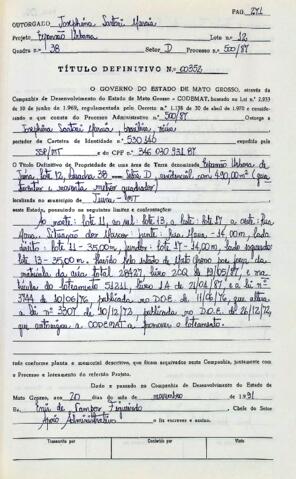 PAG. 271
OUTORGADO Josephina Sartori Maria
Projeto Expansão Urbana Lote n.º 12
Quadra n.º 38 Setor D Processo n.º 500/87
TÍTULO DEFINITIVO N.º 00352
O GOVERNO DO ESTADO DE MATO GROSSO, através da
Companhia de Desenvolvimento do Estado de Mato Grosso - CODEMAT, baseado na Lei n.º 2.933
de 30 de junho de 1969, regulamentada pelo Decreto n.º 1.138 de 30 de abril de 1970 e considerando
o que consta do Processo Administrativo n.º 500/87 Outorga a
Josephina Sartori Maria, brasileira, viúva
portador da Carteira de Identidade n.º 530146 expedida
SSP/MT e do CPF n.º 346 030 931 87
O Título Definitivo de Propriedade de uma área de Terra denominado Expansão Urbana de
Juína, lote 12, quadra 38 setor D, residencial com 490,00 m² (qua
trocentos e noventa metros quadrados)
localizada no município de Juína - MT
neste Estado, possuindo os seguintes limites e confrontações:
Ao norte: lote 11, ao sul: lote 13, a leste: lote 17 a oeste: rua
frente: 14,00m, lado
direito: lote 11 - 35,00m, fundos: lote 17 - 14,00m, lado esquerdo
lote 13 - 35,00m. Havido pelo Estado de Mato Grosso por força da
matrícula da área total 28427, livro 2CQ de 19/05/87, e na
trícula do loteamento 51211, livro 1A de 21/04/87 e a lei nº
3744 de 10/06/76, publicada no D.O.E. de 11/06/76, que altera
a lei nº 3307 de 10/12/72, publicada no D.O.E. de 26/12/72,
que autorizou a CODEMAT a promover o loteamento.
tudo conforme planta e memorial descritivo, que ficam arquivados nesta Companhia, juntamente com
o Processo e Intemento do referido Projeto.
Dado e passado na Companhia de Desenvolvimento do Estado de
Mato Grosso, aos 20 dias do mês de novembro de 1991
de Campos Figueiredo Chefe do Setor
Apoio Administrativo o fiz escrever e assino.
Transcrito por Conferido por Visto